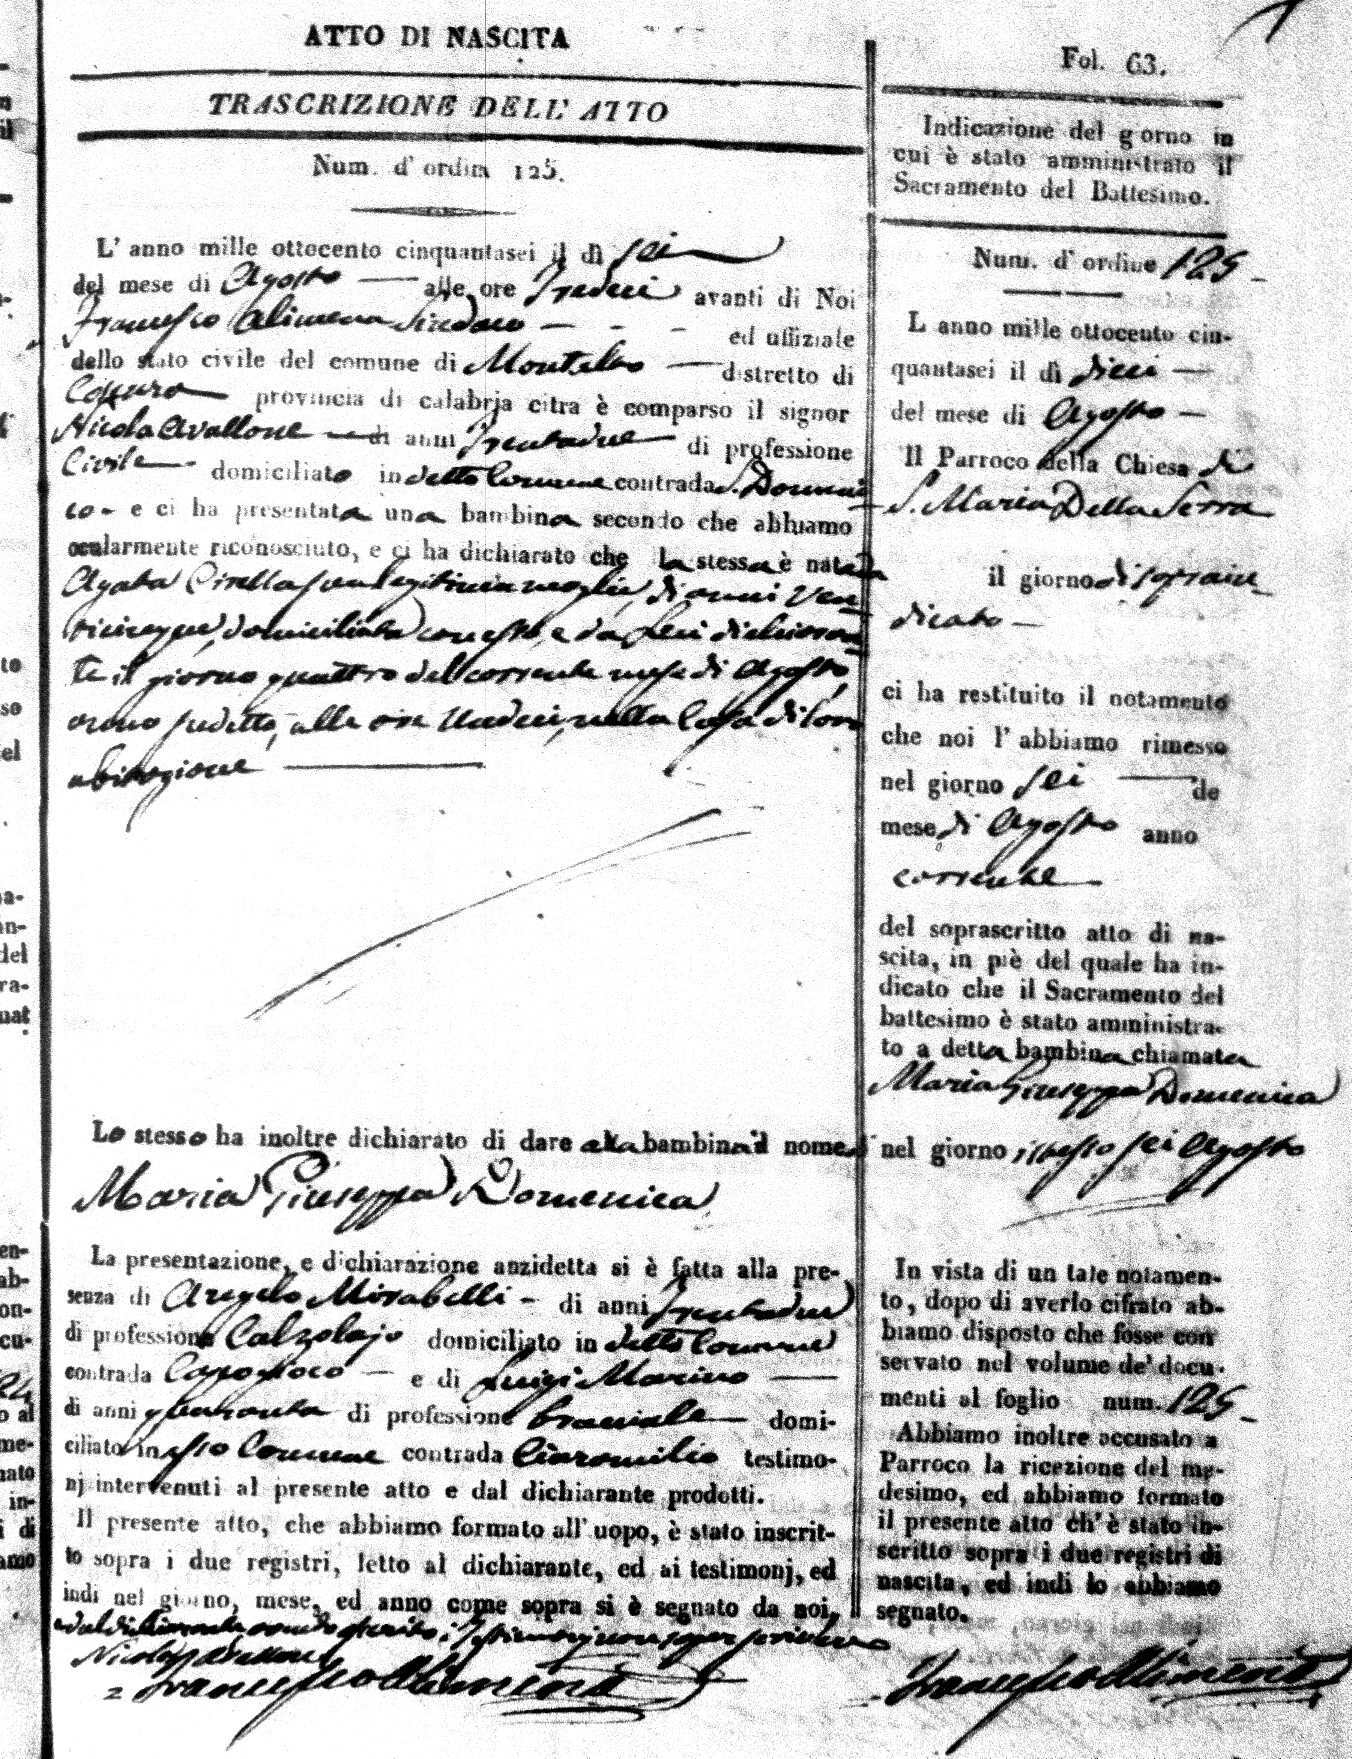 ATTO DI NASCITA
TRASCRIZIONE DELL' ATTO
Num. d' ordin 125.
L' anno mille ottocento cinquantasei il dì sei
del mese di Agosto alle ore Tredeci avanti di Noi
Francesco Alimena Sindaco ed uffiziale
dello stato civile del comune di Montalto distretto di
provincia di calabria citra è comparso il signor
Nicola Avallone di anni Trentadue di professione
Civile domiciliato in detto Comune contrada S. Domeni
co - e ci ha presentata una bambina secondo che abbiamo
ocularmente riconosciuto, e ci ha dichiarato che la stessa è nata da
Agata Cirella sua legittima moglie, di anni Ven-
ticinque, domiciliata con esso, e da Lui dichiaran
te il giorno quattro del corrente mese di Agosto,
anno sudetto, alle ore Undeci, nella Casa di loro
abitazione
Lo stesso ha inoltre dichiarato di dare alla bambina il nome di
Maria Giuseppa Domenica
La presentazione, e dichiarazione anzidetta si è fatta alla pre-
senza di Angelo Mirabelli - di anni Trentadue
di professione Calzolajo domiciliato in detto Comune
contrada e di Luigi Marino
di anni quaranta di professione Braciale domi-
ciliato in esso Comune contrada Ciaromilio testimo-
nj intervenuti al presente atto e dal dichiarante prodotti.
Il presente atto, che abbiamo formato all' uopo, è stato inscrit-
to sopra i due registri, letto al dichiarante, ed ai testimonj, ed
indi nel giorno, mese, ed anno come sopra si è segnato da noi,
e dal dichiarante avendo i Testimonj non saper scrivere
Nicola Avallone
Francesco Alimena
Fol. 63.
Indicazione del g orno in
cui è stato amministrato il
Sacramento del Battesimo.
Num. d' ordine 125
L anno mille ottocento cin-
quantasei il dì dieci
del mese di Agosto
Il Parroco della Chiesa di
S. Maria Della Serra
il giorno di soprain
dicato
ci ha restituito il notamento
che noi l' abbiamo rimesso
nel giorno sei de
mese di Agosto anno
corrente
del soprascritto atto di na-
scita, in piè del quale ha in-
dicato che il Sacramento del
battesimo è stato amministra-
to a detta bambina chiamata
Maria Giuseppa Domenica
nel giorno istesso sei Agosto
In vista di un tale notamen-
to, dopo di averlo cifrato ab-
biamo disposto che fosse con
servato nel volume de' docu-
menti al foglio num. 125
Abbiamo inoltre accusato a
Parroco la ricezione del me-
desimo, ed abbiamo formato
il presente atto ch' è stato in-
scritto sopra i due registri di
nascita, ed indi lo abbiamo
segnato.
Francesco Alimena